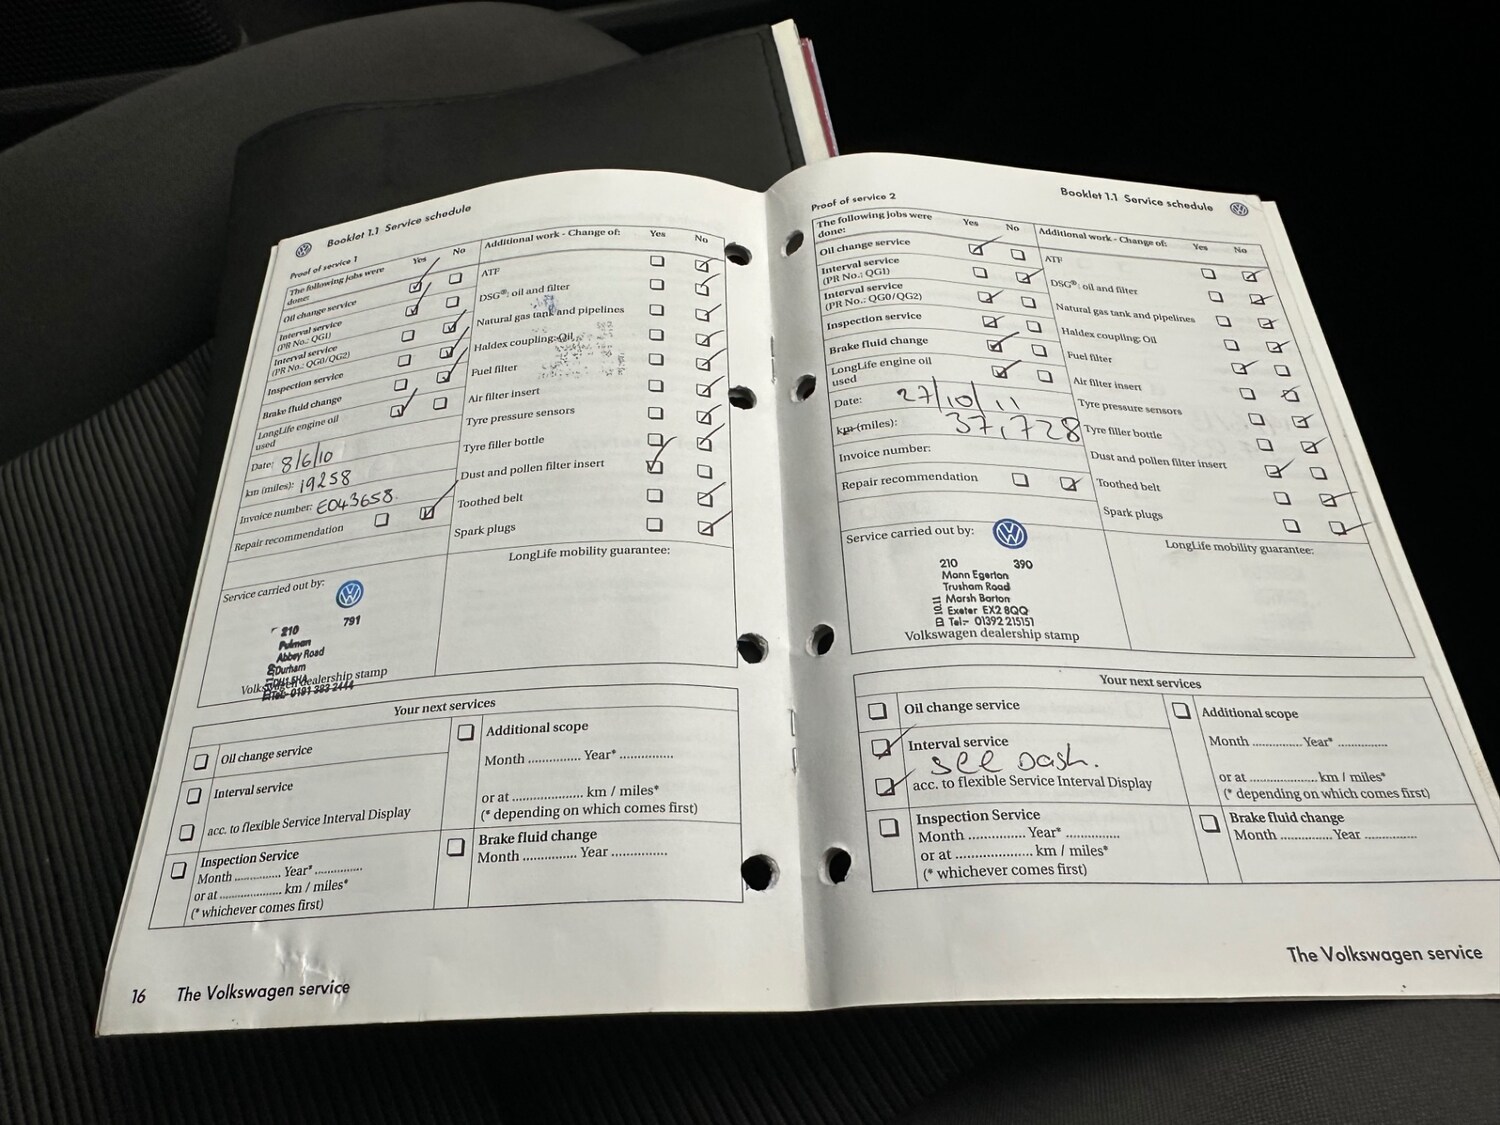 Booklet 1.1 Service schedule
Proof of service 1
The following jobs were done:
Yes
No
Oil change service
Interval service
(PR No.: QG1)
Interval service
(PR No.: QG0/QG2)
Inspection service
Brake fluid change
LongLife engine oil used
Date: 8/6/10
km (miles): 19258
Invoice number: E043658
Repair recommendation
Additional work - Change of:
Yes
No
ATF
DSG®: oil and filter
Natural gas tank and pipelines
Haldex coupling: Oil
Fuel filter
Air filter insert
Tyre pressure sensors
Tyre filler bottle
Dust and pollen filter insert
Toothed belt
Spark plugs
LongLife mobility guarantee:
Service carried out by:
210 791
Pulman
Abbey Road
Durham
Tel:- 0191 383 2444
Volkswagen dealership stamp
Your next services
Oil change service
Interval service
acc. to flexible Service Interval Display
Inspection Service
Month ............. Year* .............
or at .................. km / miles*
(* whichever comes first)
Additional scope
Month ............. Year* .............
or at .................. km / miles*
(* depending on which comes first)
Brake fluid change
Month ............. Year .............
16 The Volkswagen service
Proof of service 2
Booklet 1.1 Service schedule
The following jobs were done:
Yes
No
Oil change service
Interval service
(PR No.: QG1)
Interval service
(PR No.: QG0/QG2)
Inspection service
Brake fluid change
LongLife engine oil used
Date: 27/10/11
km (miles): 37,728
Invoice number:
Repair recommendation
Additional work - Change of:
Yes
No
ATF
DSG®: oil and filter
Natural gas tank and pipelines
Haldex coupling: Oil
Fuel filter
Air filter insert
Tyre pressure sensors
Tyre filler bottle
Dust and pollen filter insert
Toothed belt
Spark plugs
LongLife mobility guarantee:
Service carried out by:
210 390
Mann Egerton
Trusham Road
Marsh Barton
Exeter EX2 8QQ
Tel:- 01392 215151
Volkswagen dealership stamp
Your next services
Oil change service
Interval service
see Dash.
acc. to flexible Service Interval Display
Inspection Service
Month ............. Year* .............
or at .................. km / miles*
(* whichever comes first)
Additional scope
Month ............. Year* .............
or at .................. km / miles*
(* depending on which comes first)
Brake fluid change
Month ............. Year .............
The Volkswagen service